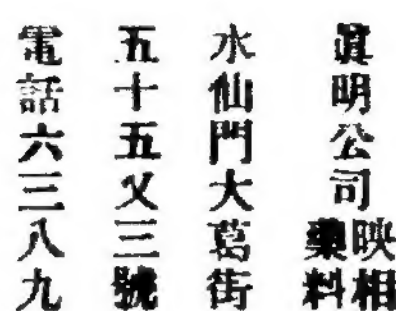 眞明公司映相藥料
水仙門大葛街
五十五又三號
電話六三八九